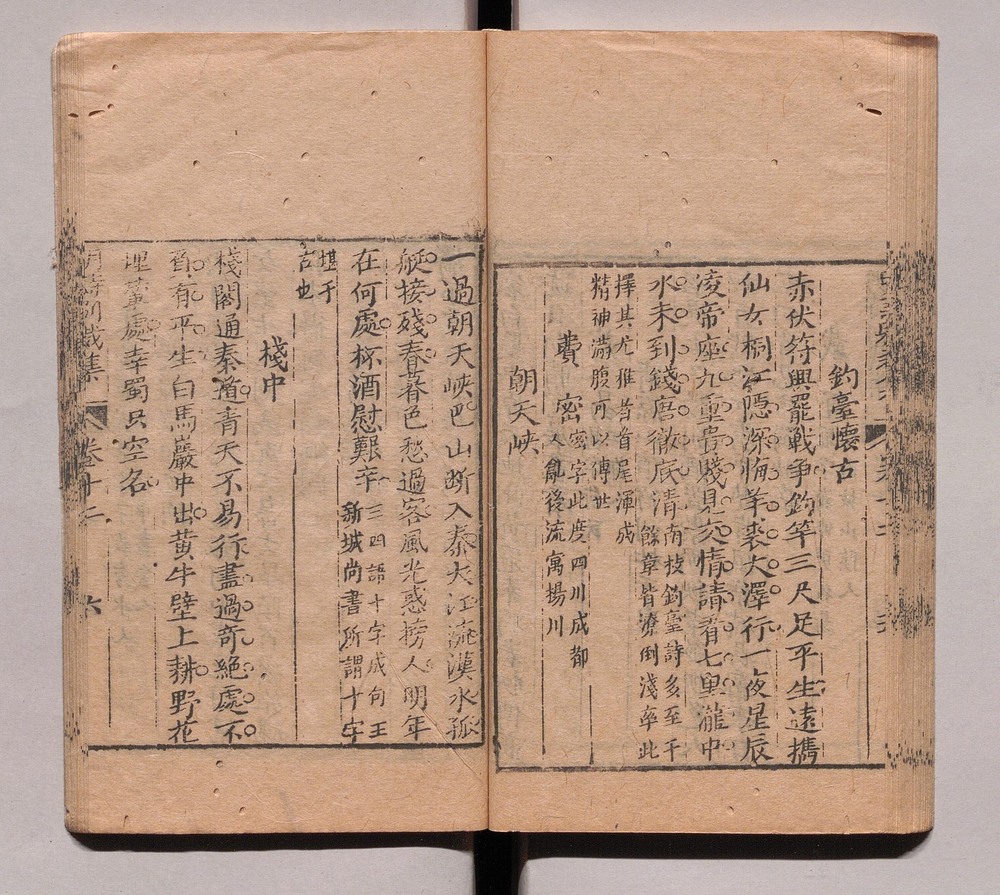 釣臺懷古
赤伏符興罷戰爭釣竿三尺足平生遠攜
仙女桐江隱深悔羊裘大澤行一夜星辰
凌帝座九重貴賤見交情請看七里瀧中
水未到錢唐徹底清
南枝釣臺詩多至千
餘章皆潦倒淺率此
擇其尤雅者首尾渾成
精神滿腹可以傳世
費密
密字此度四川成都
人亂後流寓揚州
朝天峽
一過朝天峽巴山斷入秦大江流漢水孤
艇接殘春暮色愁過客風光惑榜人明年
在何處杯酒慰艱辛
三四語十字成句王
新城尚書所謂十字
堪千
古也
棧中
棧閣通秦道青天不易行盡過奇絕處不
負有平生白馬巖中出黃牛壁上耕野花
埋葬處幸蜀只空名
明詩別裁集
卷十二
六